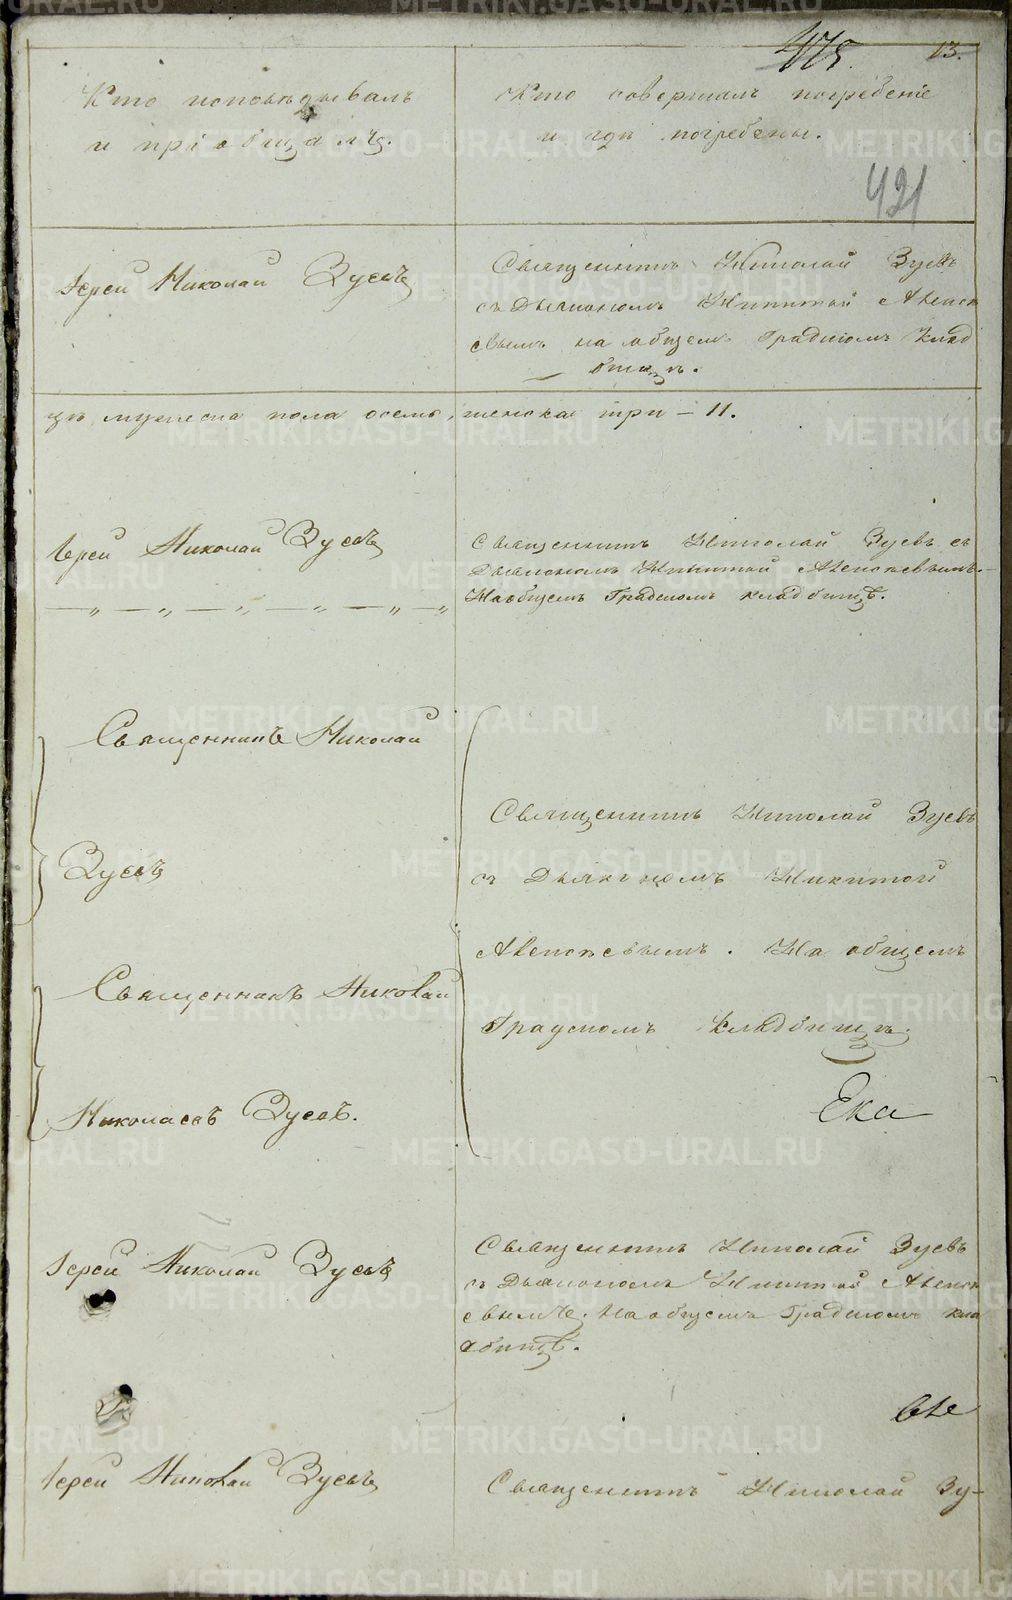 475. 13.
Кто исповѣдывалъ
и пріобщалъ.
Кто совершалъ погребеніе
и гдѣ погребены.
421
Іерей Николай Зуевъ
Священникъ Николай Зуевъ
съ Дьякономъ Никитой
на общемъ Градскомъ клад
бищѣ.
мужеска пола осемь, женска три – 11.
Іерей Николай Зуевъ
Священникъ Николай Зуевъ съ
Дьякономъ Никитой
На общемъ Градскомъ кладбищѣ.
Священникъ Николай
Зуевъ
Священникъ Николай
Николаевъ Зуевъ.
Священникъ Николай Зуевъ
съ Дьякономъ Никитой
На общемъ
Градскомъ Кладбищѣ.
Ека
Іерей Николай Зуевъ
Священникъ Николай Зуевъ
съ Дьякономъ Никитой
евымъ. На общемъ Градскомъ кла
дбищѣ.
Іерей Николай Зуевъ
Священникъ Николай Зу-
METRIKI.GASO-URAL.RU